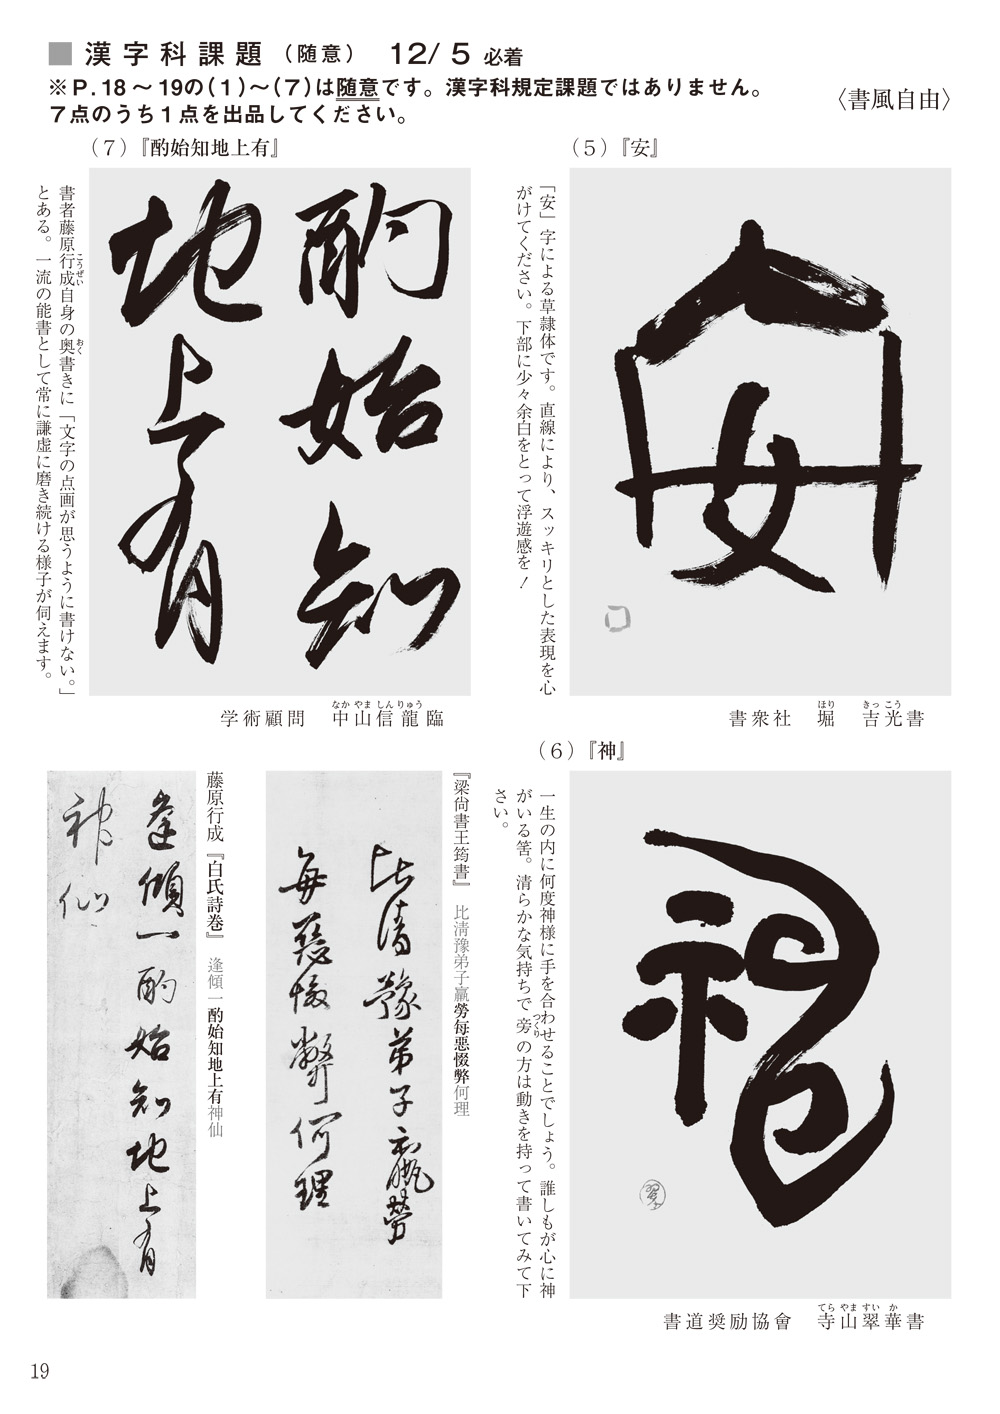 ■漢字科課題（随意） 12/5必着
※P.18～19の(1)～(7)は随意です。漢字科規定課題ではありません。
７点のうち１点を出品してください。
〈書風自由〉
（5）『安』
「安」字による草隷体です。直線により、スッキリとした表現を心
がけてください。下部に少々余白をとって浮遊感を！
安
書衆社　堀　吉光書
ほり　きっこう
（7）『酌始知地上有』
酌始知
地上有
書者藤原行成自身の奥書きに「文字の点画が思うように書けない。」
こうぜい　おく
とある。一流の能書として常に謙虚に磨き続ける様子が伺えます。
学術顧問　中山信龍臨
なかやましんりゅう
（6）『神』
一生の内に何度神様に手を合わせることでしょう。誰しもが心に神
がいる筈。清らかな気持ちで旁の方は動きを持って書いてみて下
つくり
さい。
神
書道奨励協會　寺山翠華書
てらやますいか
『梁尚書王筠書』　比清豫弟子羸勞每惡惙弊何理
比清豫弟子羸勞
每惡惙弊何理
藤原行成『白氏詩巻』　逢傾一酌始知地上有神仙
逢傾一酌始知地上有
神仙
19